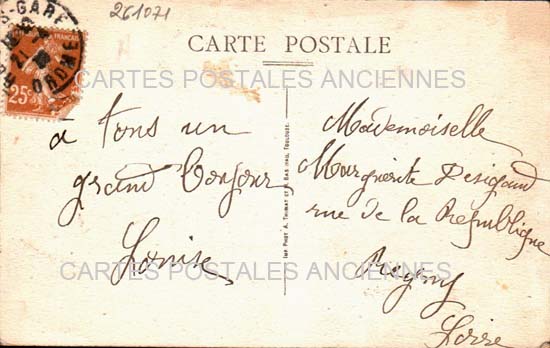 261071
S-GARE
RHONE
25c
CARTE POSTALE
CARTES POSTALES ANCIENNES
à tous un
grand bonjour
Louise
IMP PHOT A. THIRIAT ET TOULOUSE
Mademoiselle
Marguerite Désigaud
rue de la République
Régny
Loire
CARTES POSTALES ANCIENNES